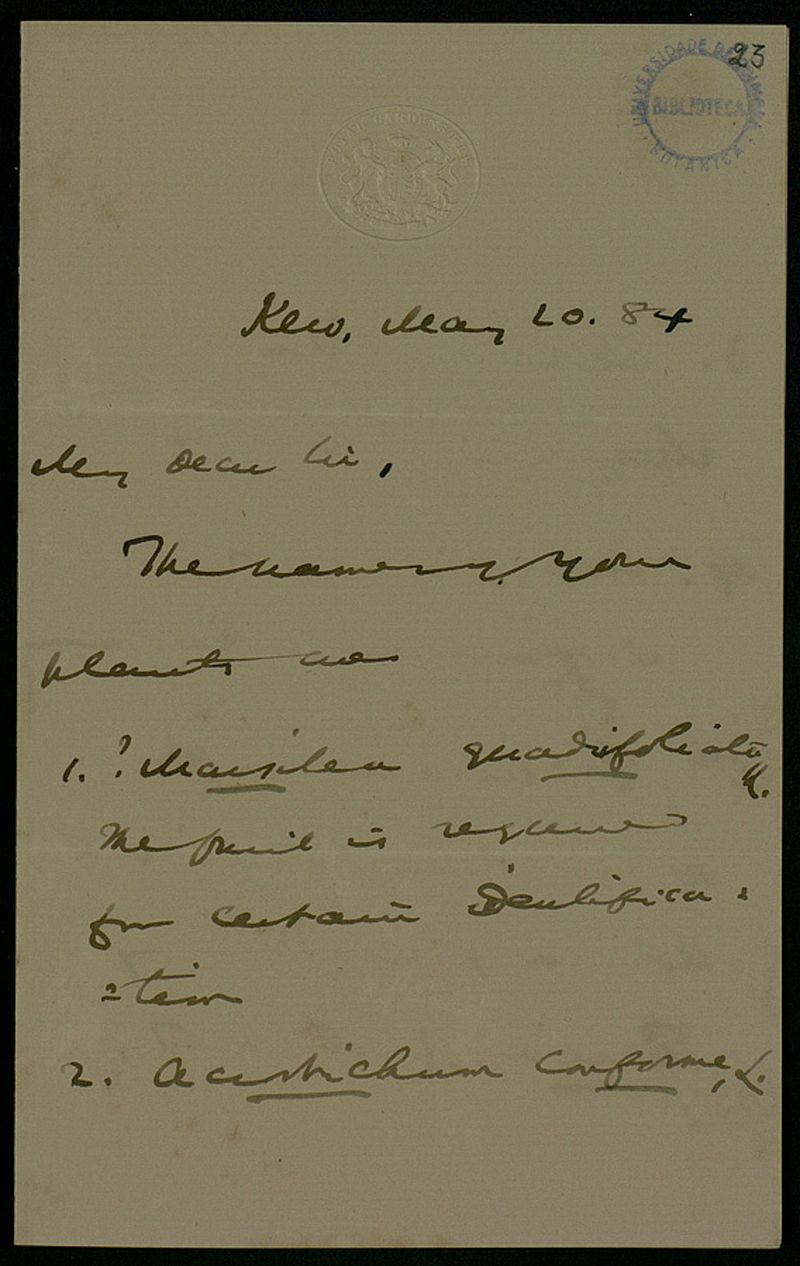 23
UNIVERSIDADE DE COIMBRA
BIBLIOTECA
BOTANICA
ROYAL GARDENS KEW
Kew, May 20. 84
My dear Sir,
The names of your
plants are
1. ? Marsilea quadrifoliata
The fruit is required
for certain identifica=
=tion
2. Acrostichum conforme, L.